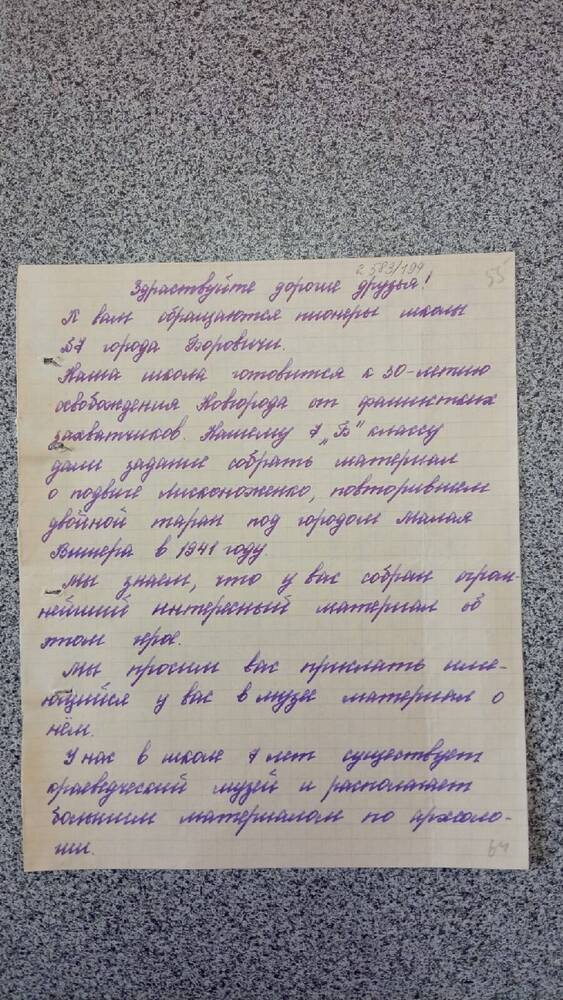 2583/194
55
Здраствуйте дорогие друзья!
К вам обращаются пионеры школы
№7 города Боровичи.
Наша школа готовится к 30-летию
освобождения Новгорода от фашистких
захватчиков. Нашему 7 „Б" классу
дали задание собрать материал
о подвиге Лисконоженко, повторившем
двойной таран под городом Малая
Вишера в 1941 году.
Мы знаем, что у вас собран огром-
нейший интересный материал об
этом герое.
Мы просим вас прислать име-
ющийся у вас в музее материал о
нём.
У нас в школе 7 лет существует
краеведческий музей и располагает
большим материалом по археоло-
гии.
64